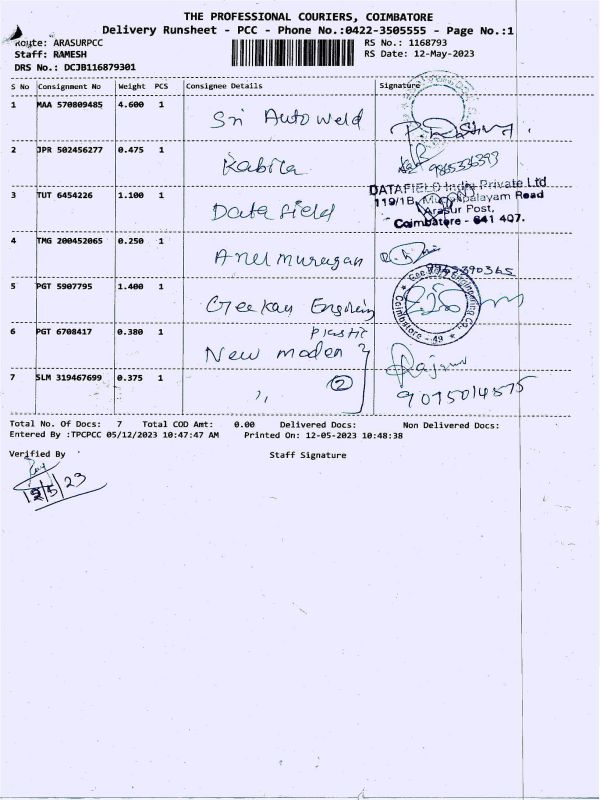 THE PROFESSIONAL COURIERS, COIMBATORE
Delivery Runsheet - PCC - Phone No.:0422-3505555 - Page No.:1
Route: ARASURPCC
RS No.: 1168793
Staff: RAMESH
RS Date: 12-May-2023
DRS No.: DCJB116879301
S No Consignment No Weight PCS Consignee Details Signature
1 MAA 570809485 4.600 1 Sri Auto weld
2 JPR 502456277 0.475 1 Kabila
9865336393
3 TUT 6454226 1.100 1 Data field
DATAFIELD India Private Ltd
119/1B, Road
Arasur Post,
Coimbatore - 641 407.
4 TMG 200452065 0.250 1 Arul murugan
5 PGT 5907795 1.400 1 Geekay
Coimbatore - 49
6 PGT 6708417 0.380 1 New moden Plastic
7 SLM 319467699 0.375 1 ,, 2
Total No. Of Docs: 7 Total COD Amt: 0.00 Delivered Docs: Non Delivered Docs:
Entered By :TPCPCC 05/12/2023 10:47:47 AM Printed On: 12-05-2023 10:48:38
Verified By Staff Signature
12/5/23